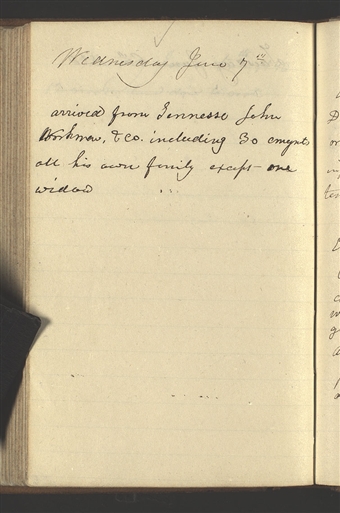 Wednesday June 7th
arrived from Tennesse John
Workman, & co. including 30 emgnts
all his own family except one
widow